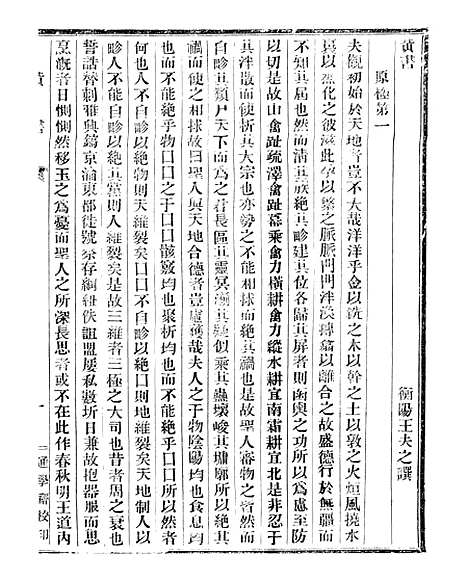 黃書
衡陽王夫之譔
原極第一
夫觀初始於天地者豈不大哉洋洋乎金以銑之木以幹之土以敦之火烜風撓水
裹以烝化之彼滋此孕以繁之脈脈門門泮渙摶翕以離合之故盛德行於無疆而
不知其屆也然而清其族絕其畛建其位各歸其屏者則函輿之功所以爲慮至防
以切是故山禽趾疏澤禽趾冪乘禽力橫耕禽力縱水耕宜南霜耕宜北是非忍于
其泮散而使析其大宗也亦勢之不能相救而絕其禍也是聖人審物之皆然而
自畛其類尸天下而爲之君長區其靈冥湔其疑似乘其蠱壞峻其墉廓所以絕其
禍而使之相捄故曰聖人與天地合德者豈虛獲哉夫人之于物陰陽均也食息均
也而不能絕乎物口口之于口口骸竅均也聚析均也而不能絕乎口口所以然者
何也人不自畛以絕物則天維裂矣華夏不自畛以絕
自畛人不能自畛以絕其黨則人維裂矣是故三維者三極之大司也昔者周之衰也
誓誥替刺雅興鎬京淪東都徙號祭存綱紐佚詛盟屢私斁圻日兼故抱器服而思
烹漑者日惻惻然移玉之爲憂而聖人之所深長思者或不在此作春秋明王道內
黃書
一